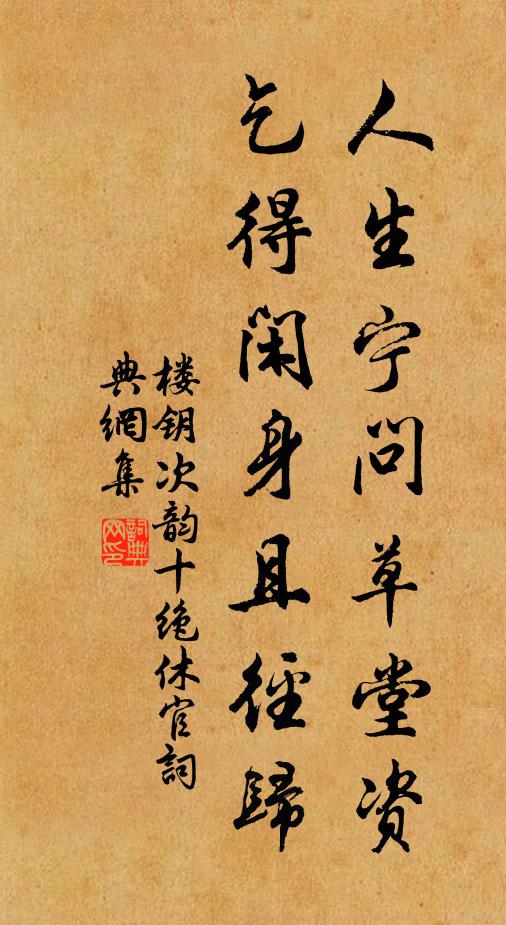 人生宁问草堂资
乞得闲身且径歸
楼钥次韵十绝休官詞
典網集
詞典网印